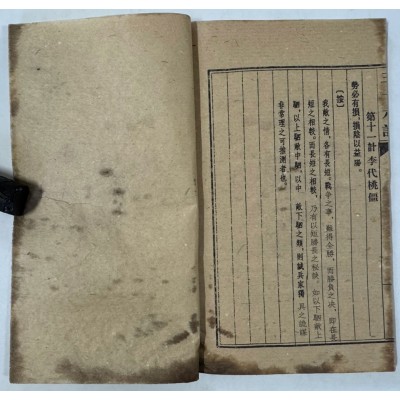 第十一計 李代桃僵
勢必有損，損陰以益陽。
〔按〕
我敵之情，各有長短。戰爭之事，難得全勝，而勝負之决，即在長
短之相較。而長短之相較，乃有以短勝長之秘訣。如以下駟敵上
駟，以上駟敵中駟，以中 敵下駟之類，則誠兵家獨 具之詭謀
非常理之可推測者也。